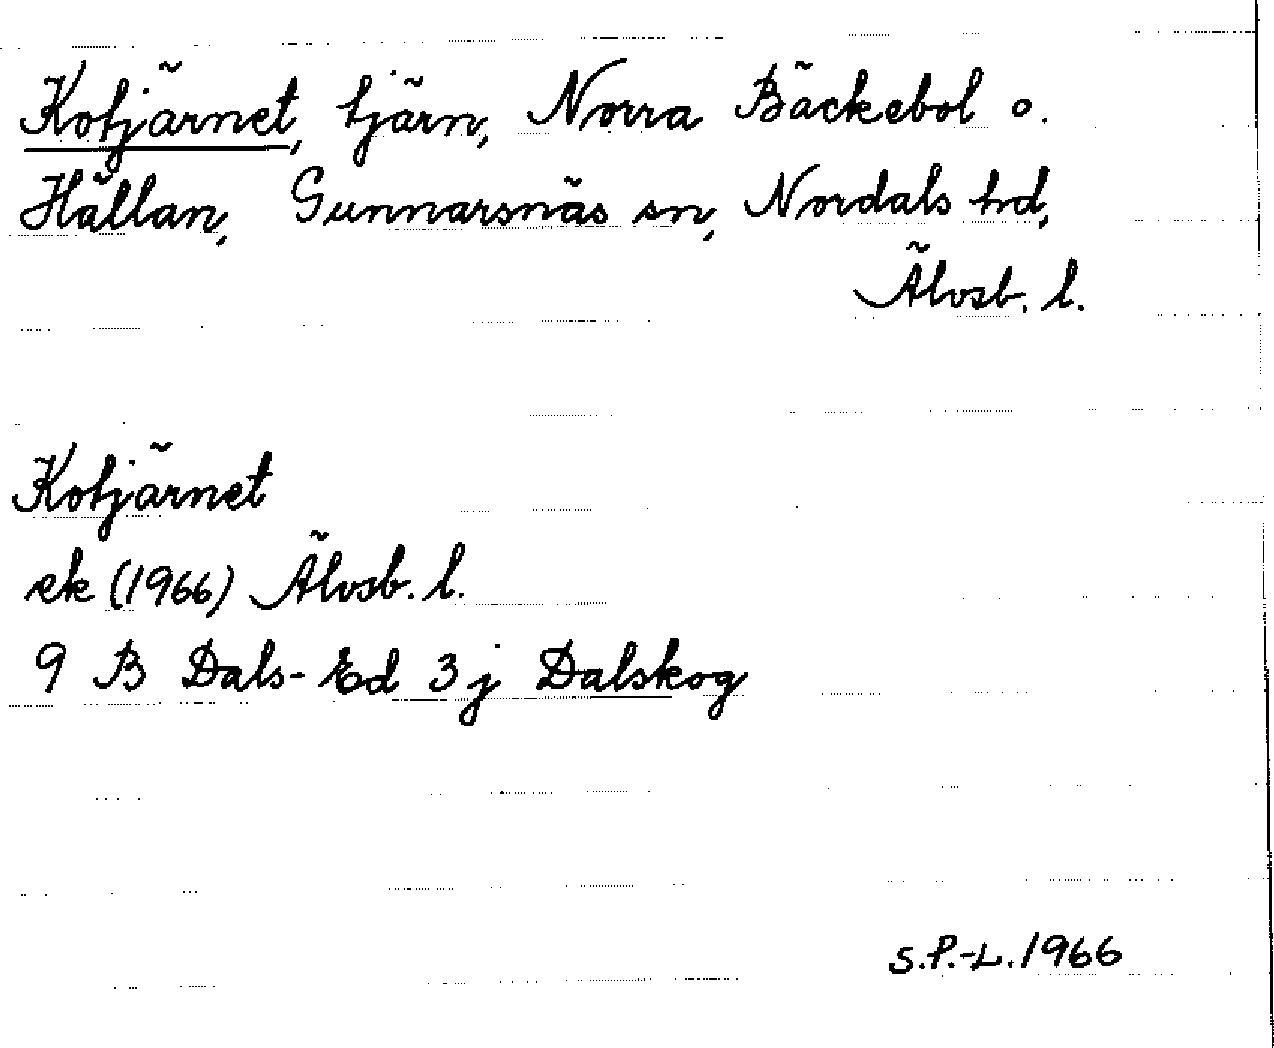 Kotjärnet, tjärn, Norra Bäckebol o.
Hällan, Gunnarsnäs sn, Nordals hd,
Älvsb. l.
Kotjärnet
ek (1966) Älvsb. l.
9 B Dals-Ed 3j Dalskog
S.P.-L. 1966